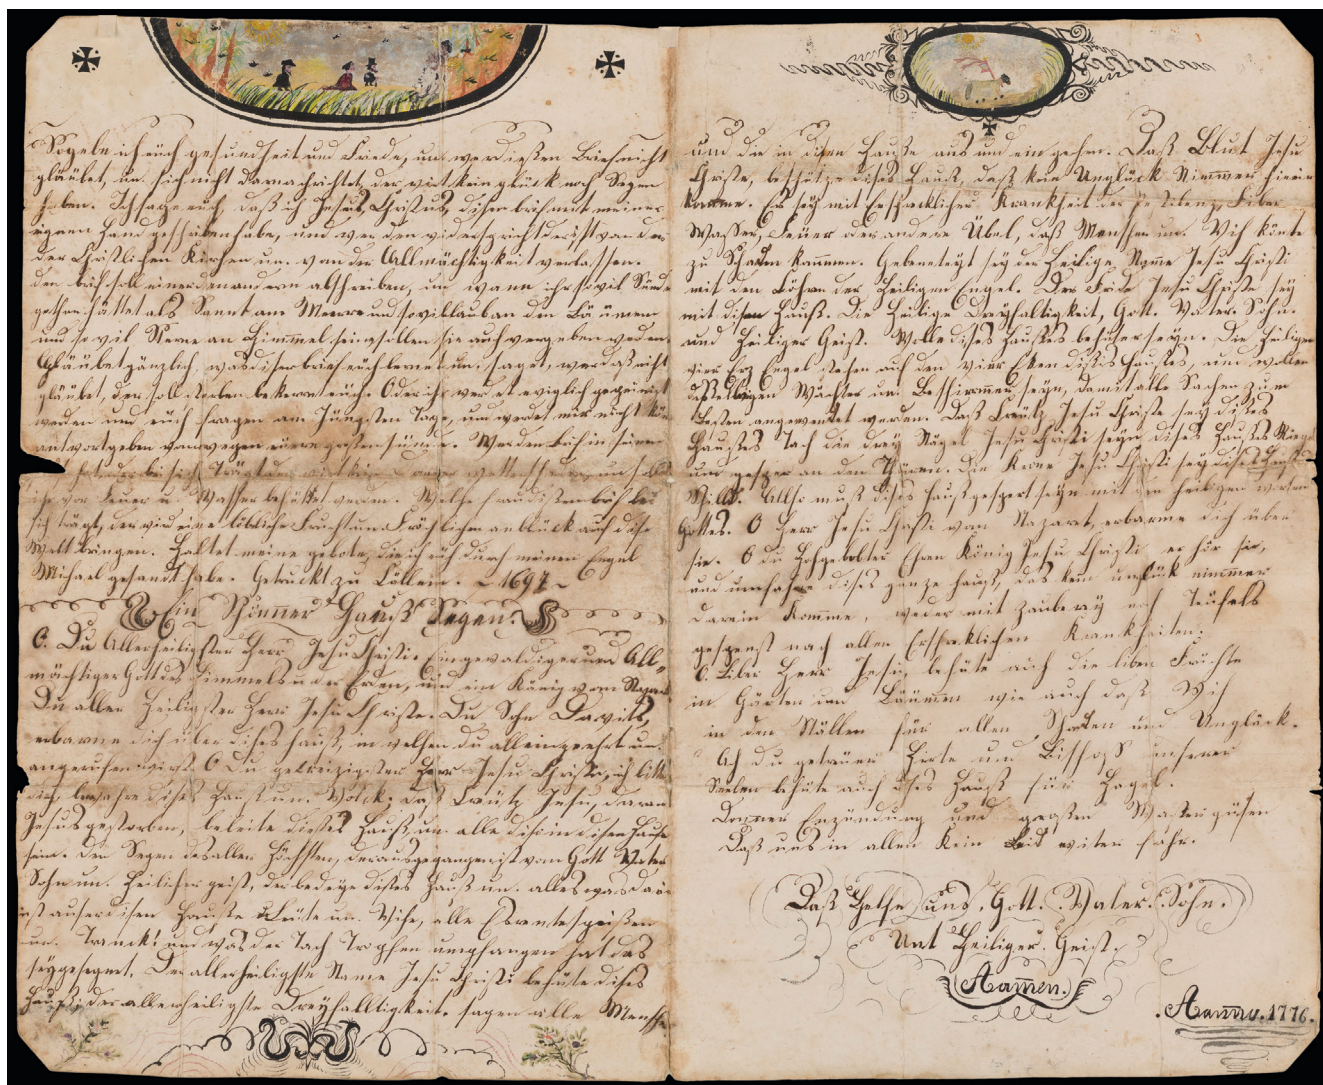 So gebe ich eüch gesundheit und friede, un. wer dießen brief nicht
gläubet, un. sich nicht darnach richtet, der wirt kein glück noch Segen
haben. Ich sage eüch, daß ich Jesus Christus disen brif mit meiner
eignen Hand geschriben habe, und wer den widerspricht der ist von der
der Christlichen Kirchen un. von der Allmächtigkeit verlassen.
den brif soll einer den andern abschreiben, un wann ihr so vil Sünde
gethan hättet als Sannt am Meere und so vil laub an den Bäumen
und so vil Sterne an Himmel sein sollen sie euch vergeben werden
Gläubet gänzlich, was diser brief eüch lernet un. saget, wer das nicht
gläubet, der soll sterben bekeret eüch Oder ihr werdet ewiglich gepeiniget
werden und eüch fragen am Jüngsten Tage, un werdet mir nicht
antwort geben von wegen eürer großen sünde. Wer den brif in seinem
hat oder bei sich Trägt
vor Feüer u. Wasser behütet werden. Welche frau disen brif bei
sich trägt, der wird eine liebliche Frucht und Frölichen anblick auf dise
Welt bringen. Haltet meine gebote, die ich eüch durch meinen Engel
Michael gesandt habe. Getruckt zu Cöllen. 1697
Ein Schönner Hauß Segen.
O. Du Allerheiligster Herr Jesu Christi. Ein gewaldiger und All=
mächtiger Gott des Himmels u der Erden, und ein König von
Du aller Heiligster Herr Jesu Christe. Du Sohn Davits,
erbarme dich über dises hauß, in welchen du allein geehrt un.
angerufen wirst. O Du gekreizigster Herr Jesu Christi, ich bitte
dich, bewahre dises Hauß un. Volck; daß Creütz Jesu, daran
Jesus gestorben, beleite dieses Hauß, un. alle die in disen Hause
sein. Der Segen des aller Höchsten, der ausgegangen ist vom Gott Vater
Sohn un. Heilicher geist, der bedeye dises Hauß un. alles was
ist auser disen Hauße Leüte un. Vihe, alle
un. Tranck! und was der Tach Tropfen umpfangen hat das
sey gesegnet. Der allerheiligste Name Jesu Christi behüte dises
Hauß; der allerheiligste Dreyfalltigkeit. sagen alle Mensche
und die in disen Hauße aus und ein gehen. Daß Blut Jesu
Christe, beschütze dises Hauß, daß kein Unglück Nimmer hierin
komme. Er sey mit erschrecklicher Krankheit der Pestilenz, Fiber
Wasser, Feüer oder andere Übel, daß Menschen un. Vih könte
zu Schaden kommen. Gebenedeyt sey der Heilige Name Jesu Christi
mit den Chören der Heiligen Engel. Der Fride Jesu Christe sey
mit disem Hauß. Die Heilige Dreyfalltigkeit, Gott. Vater. Sohn.
und Heiliger Geist. Wolle dises Haußes behüter seyn. Die Heiligen
vier Erz Engel stehen auf den vier Eken dises Haußes, und wollen
desselbigen Wächter un. Beschirmer seyn, damit alle Sachen zum
Besten angewendet werden. Daß Creütz Jesu Christe sey dises
Haußes Tach die drey Nägel Jesu Christi seyn dises Haußes Riegel
und gesper an den Thüren. Die Krone Jesu Christi sey dises Haußes
Schild. Allso muß dises hauß gespert seyn mit den heiligen worten
Gottes. O Herr Jesu Christi von Nazaret, erbarme dich über
sie. O du Hochgelobter Ehren König Jesu Christi erhör sie,
und umfahe dises ganze hauß, das kein unglück nimmer
darein komme, weder mit Zauberey noch Teüfels
gespenst nach allen Erschreklichen Krankheiten;
O. Liber Herr Jesu, behüte auch die liben Früchte
in Gärten und Bäumen wie auch daß Vih
in den Ställen für allen Schaden und Unglück.
Ach du getreüer Hirte und Bischoff unserer
Seelen behüte auch dises Hauß für Hagel.
Donner Enzündung und großen Wassergüsen
Daß uns in allen kein Leid witer fahr.
Daß Helfe uns, Gott. Vater. Sohn.
Unt Heiliger. Geist.
Aamen.
.Aanno. 1776.